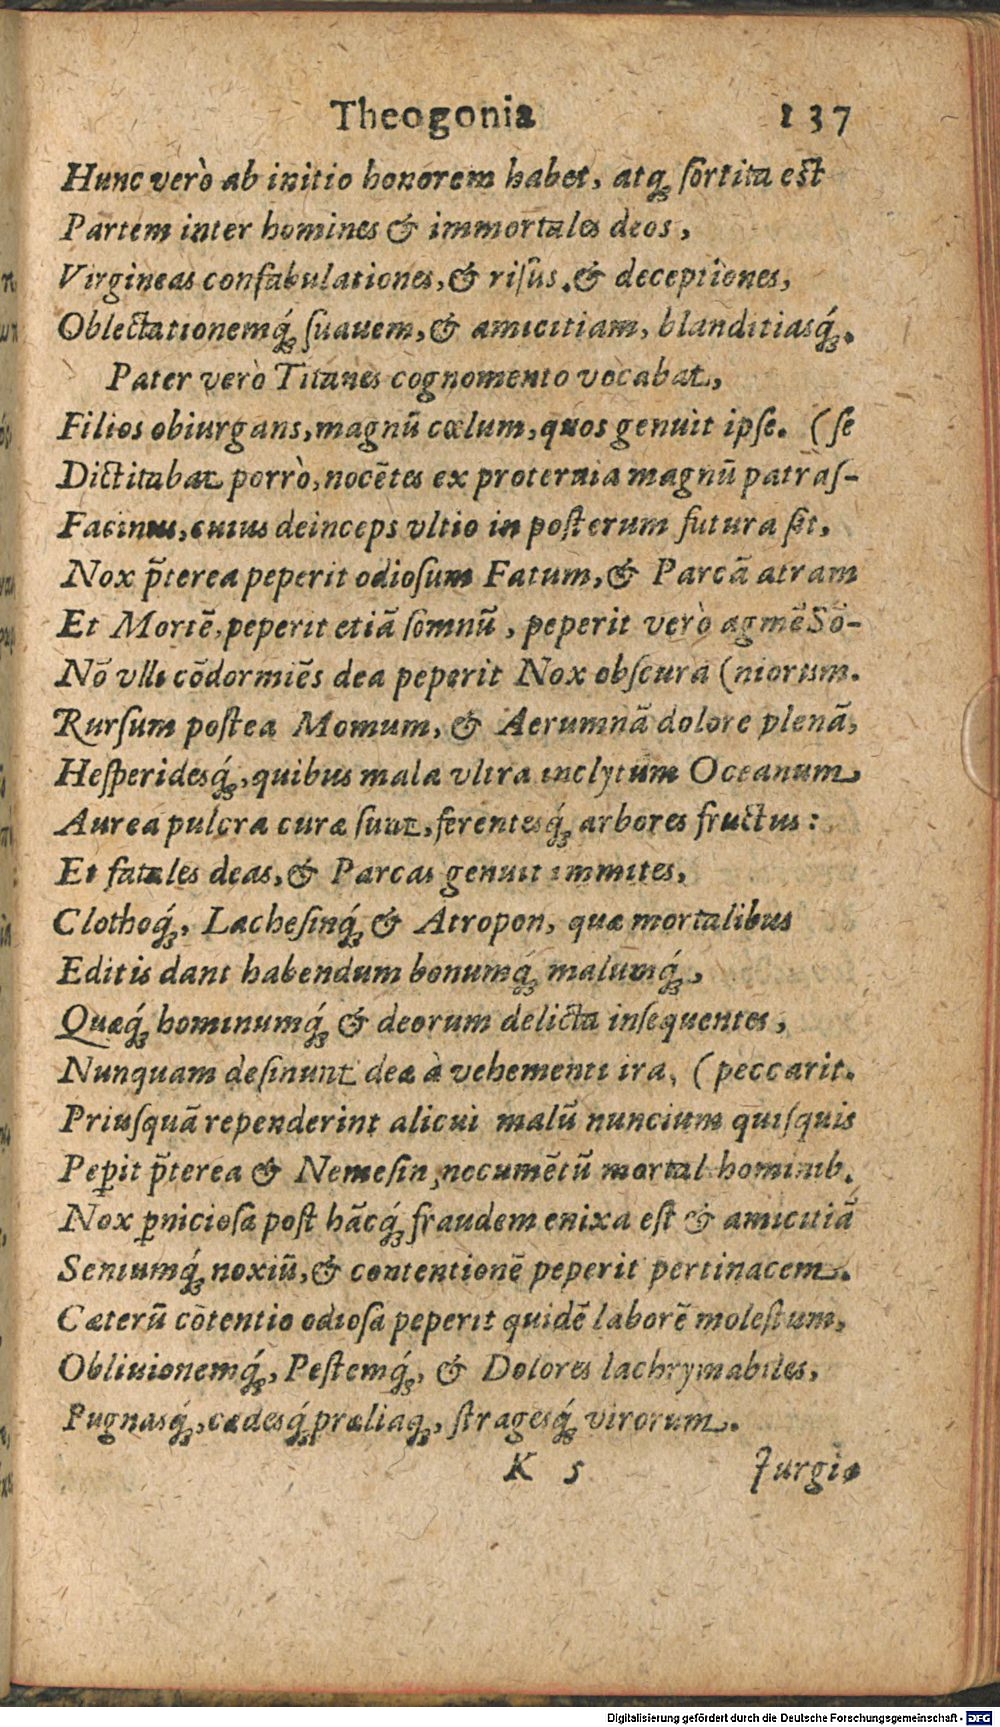 Theogonia 137
Hunc verò ab initio honorem habet, atq́; ſortita eſt
Partem inter homines & immortales deos,
Virgineas confabulationes, & riſûs. & deceptiones,
Oblectationemq́; ſuauem, & amicitiam, blanditiasq́;.
Pater verò Titanes cognomento vocabat,
Filios obiurgans, magnū cœlum, quos genuit ipſe. (ſe
Dictitabat porrò, nocētes ex proteruia magnū patràſ-
Facinus, cuius deinceps vltio in poſterum futura ſit.
Nox p̄terea peperit odioſum Fatum, & Parcā atram
Et Mortē, peperit etiā ſomnū, peperit verò agmē Sō-
Nō vlli cōdormiēs dea peperit Nox obſcura (niorum.
Rurſum poſtea Momum, & Aerumnā dolore plenā,
Heſperidesq́;, quibus mala vltra inclytum Oceanum
Aurea pulcra curæ ſunt, ferentesq́; arbores fructus:
Et fatales deas, & Parcas genuit immites,
Clothoq́;, Lacheſinq́; & Atropon, quæ mortalibus
Editis dant habendum bonumq́; malumq́;,
Quæq́; hominumq́; & deorum delicta inſequentes,
Nunquam deſinunt deæ à vehementi ira, (peccarit.
Priuſquā rependerint alicui malū nuncium quiſquis
Peꝑit p̄terea & Nemeſin, nocumētū mortal hominib.
Nox ꝑnicioſa poſt hācq́; fraudem enixa eſt & amicitiā
Seniumq́; noxiū, & contentionē peperit pertinacem.
Cæterū cōtentio odioſa peperit quidē laborē moleſtum,
Obliuionemq́;, Peſtemq́;, & Dolores lachrymabiles,
Pugnasq́;, cædesq́; præliaq;, ſtragesq́; virorum.
K 5 Jurgia
Digitalisierung gefördert durch die Deutsche Forschungsgemeinschaft - DFG